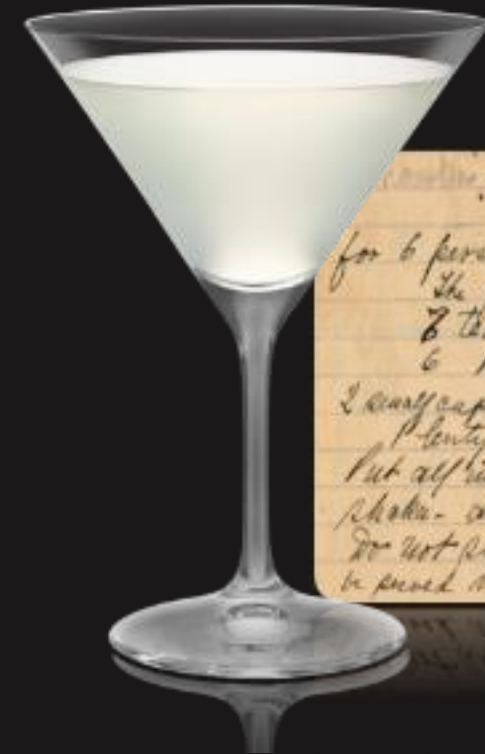 for 6 pers
The
6
2 small cup
Plenty
Put all i
shake- a
Do not p
be served